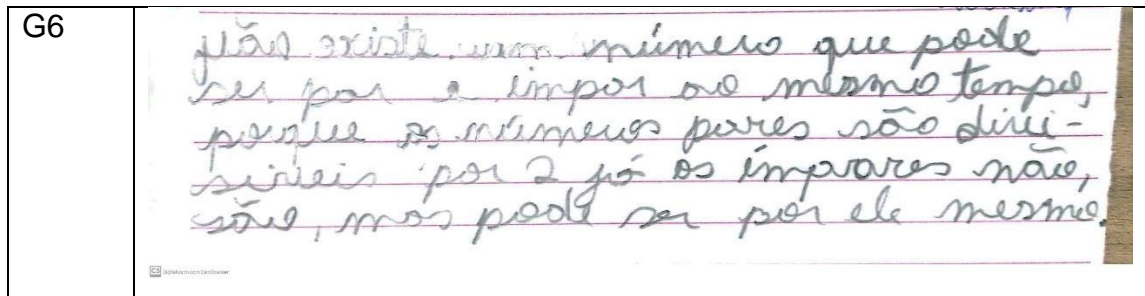 G6
Não existe um número que pode
ser par e impar ao mesmo tempo,
porque os números pares são divi-
siveis por 2 já os ímpares não,
são, mas pode ser por ele mesmo.
CS Digitalizado com CamScanner